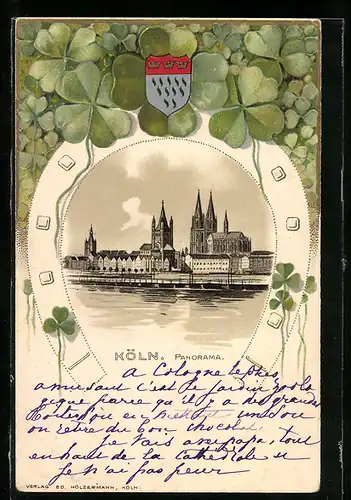 KÖLN. PANORAMA.
a Cologne le plus
amusant c'est le jardin zoolo
gique parce qu'il y a des grandes
en un sou
on retire du bon chocolat.
Je vais avec papa, tout
en haut de la cathédrale
je n'ai pas peur
VERLAG ED. HOLZERMANN, KÖLN.